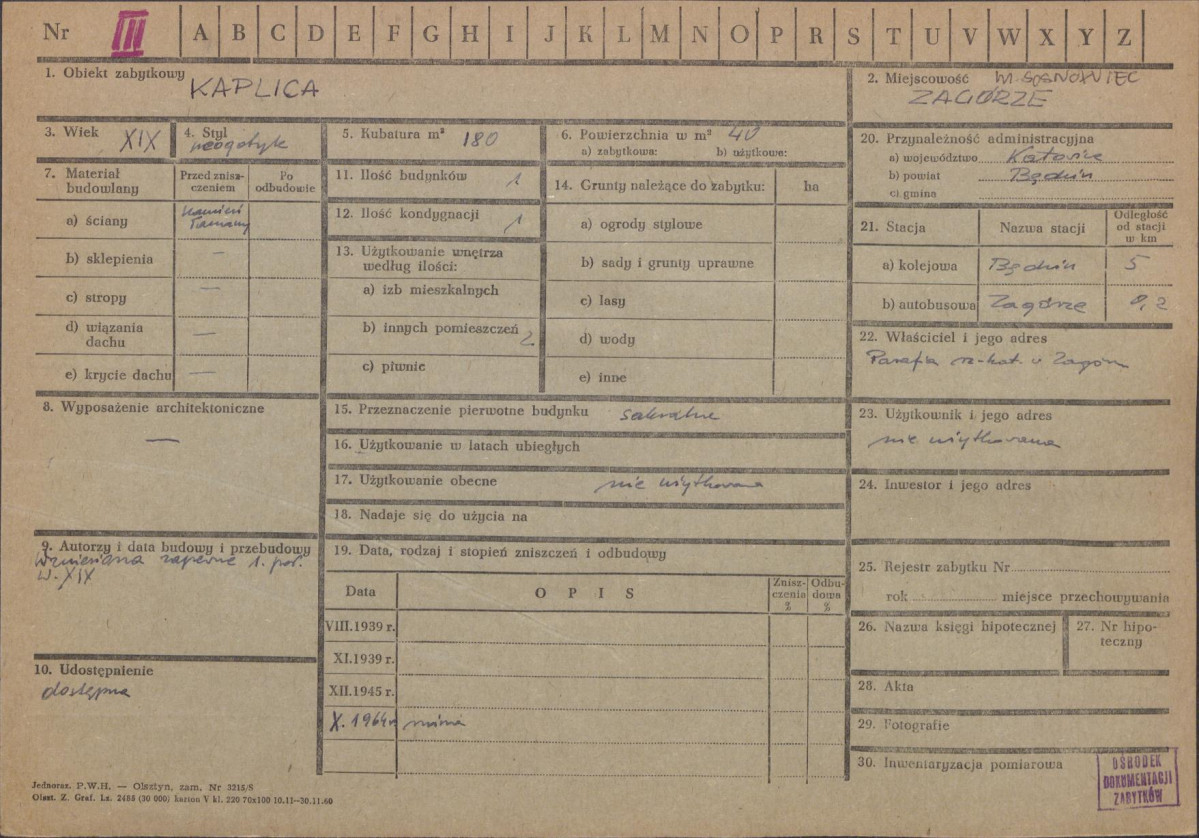 Nr III A B C D E F G H I J K L M N O P R S T U V W X Y Z
1. Obiekt zabytkowy
KAPLICA
2. Miejscowość M. SOSNOWIEC
ZAGÓRZE
3. Wiek XIX
4. Styl
neogotyk
5. Kubatura m³ 180
6. Powierzchnia w m² 40
a) zabytkowa: b) użytkowa:
7. Materiał
budowlany
Przed znisz-
czeniem
Po
odbudowie
a) ściany
kamień
łamany
b) sklepienia —
c) stropy —
d) wiązania
dachu —
e) krycie dachu —
8. Wyposażenie architektoniczne
—
9. Autorzy i data budowy i przebudowy
Wzniesiona zapewne 1. poł.
w. XIX
10. Udostępnienie
dostępna
11. Ilość budynków 1
12. Ilość kondygnacji 1
13. Użytkowanie wnętrza
według ilości:
a) izb mieszkalnych
b) innych pomieszczeń 2
c) piwnic
14. Grunty należące do zabytku: ha
a) ogrody stylowe
b) sady i grunty uprawne
c) lasy
d) wody
e) inne
15. Przeznaczenie pierwotne budynku sakralne
16. Użytkowanie w latach ubiegłych
17. Użytkowanie obecne nie użytkowana
18. Nadaje się do użycia na
19. Data, rodzaj i stopień zniszczeń i odbudowy
Data OPIS
Znisz-
czenia
%
Odbu-
dowa
%
VIII.1939 r.
XI.1939 r.
XII.1945 r.
X. 1964 r. ruina
20. Przynależność administracyjna
a) województwo Katowice
b) powiat Będzin
c) gmina
21. Stacja Nazwa stacji
Odległość
od stacji
w km
a) kolejowa Będzin 5
b) autobusowa Zagórze 0,2
22. Właściciel i jego adres
Parafia rz-kat. w Zagórzu
23. Użytkownik i jego adres
nie użytkowana
24. Inwestor i jego adres
25. Rejestr zabytku Nr
rok miejsce przechowywania
26. Nazwa księgi hipotecznej
27. Nr hipo-
teczny
28. Akta
29. Fotografie
30. Inwentaryzacja pomiarowa
OŚRODEK
DOKUMENTACJI
ZABYTKÓW
Jednoraz. P.W.H. — Olsztyn, zam. Nr 3215/S
Olszt. Z. Graf. Ls. 2485 (30 000) karton V kl. 220 70x100 10.11--30.11.60